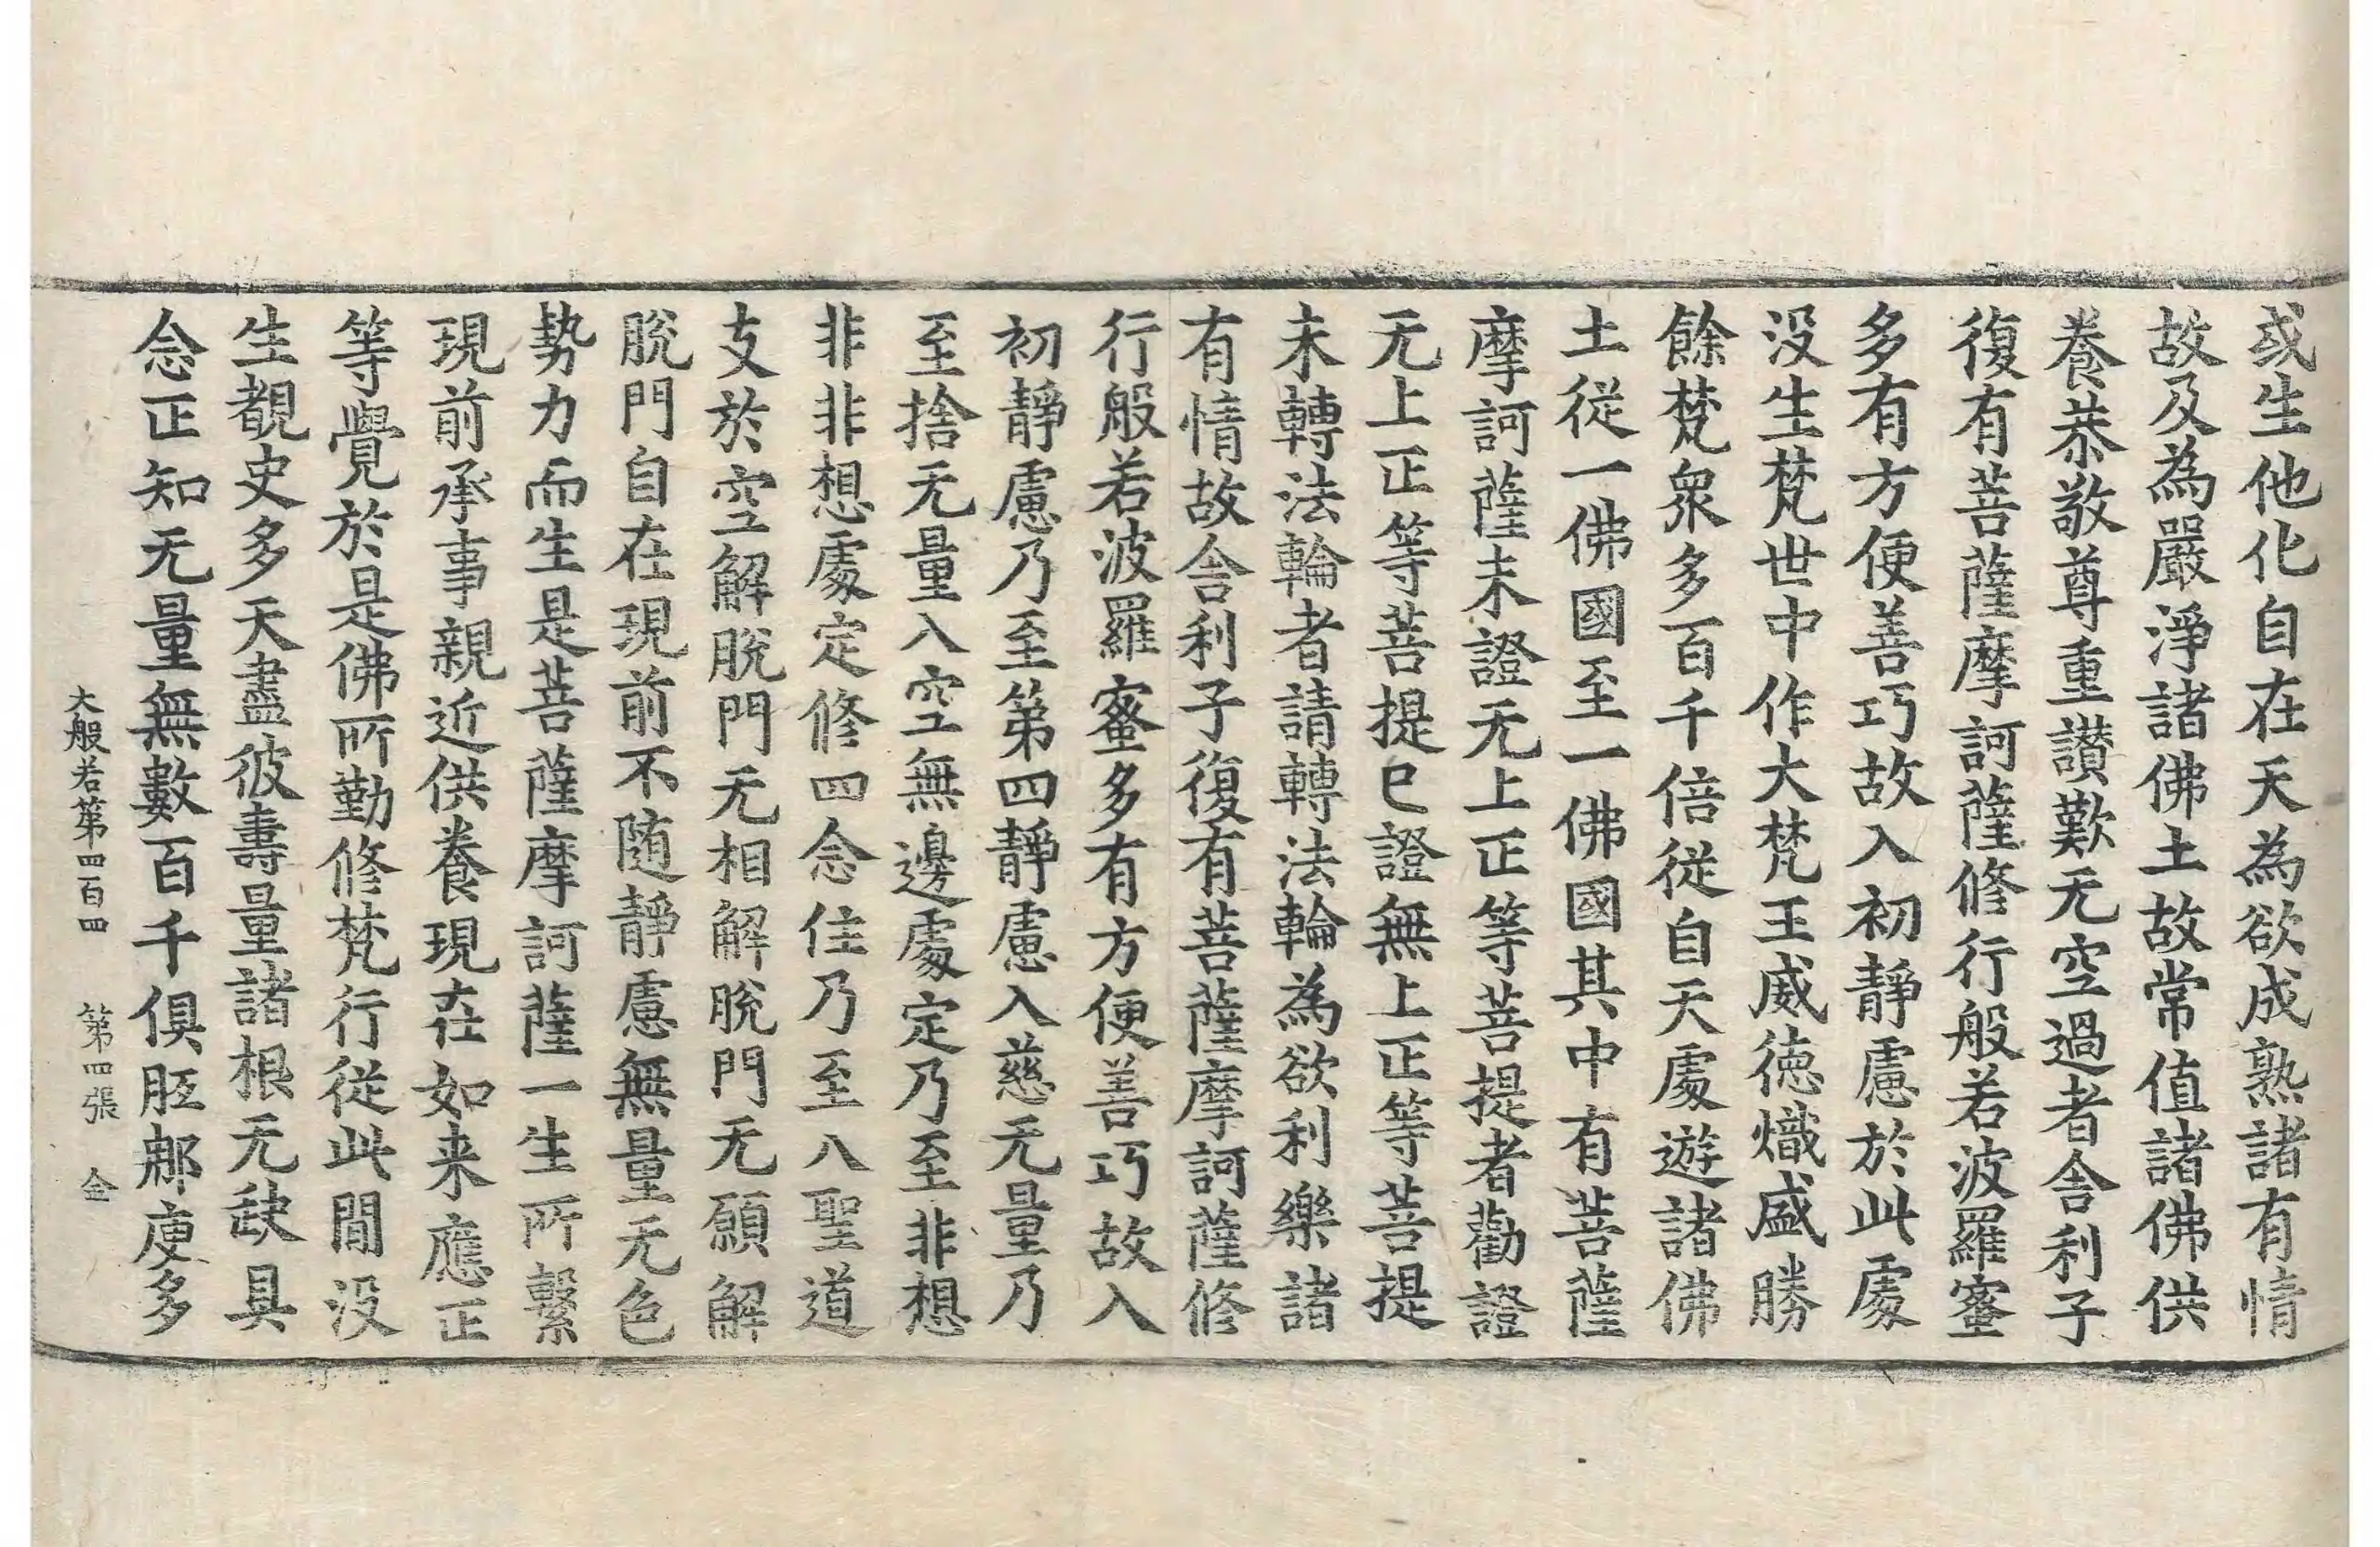 或生他化自在天為欲成熟諸有情
故及為嚴淨諸佛土故常值諸佛供
養恭敬尊重讃歎无空過者舍利子
復有菩薩摩訶薩修行般若波羅蜜
多有方便善巧故入初靜慮於此處
没生梵世中作大梵王威徳熾盛勝
餘梵衆多百千倍從自天處遊諸佛
土從一佛國至一佛國其中有菩薩
摩訶薩未證无上正等菩提者勸證
无上正等菩提已證無上正等菩提
未轉法輪者請轉法輪為欲利樂諸
有情故舍利子復有菩薩摩訶薩修
行般若波羅蜜多有方便善巧故入
初靜慮乃至第四靜慮入慈无量乃
至捨无量入空無邊處定乃至非想
非非想處定修四念住乃至八聖道
支於空解脫門无相解脫門无願解
脫門自在現前不随靜慮無量无色
勢力而生是菩薩摩訶薩一生所繫
現前承事親近供養現在如来應正
等覺於是佛所勤修梵行從此間没
生覩史多天盡彼壽量諸根无缺具
念正知无量無數百千俱胝那庾多
大般若第四百四 第四張 金